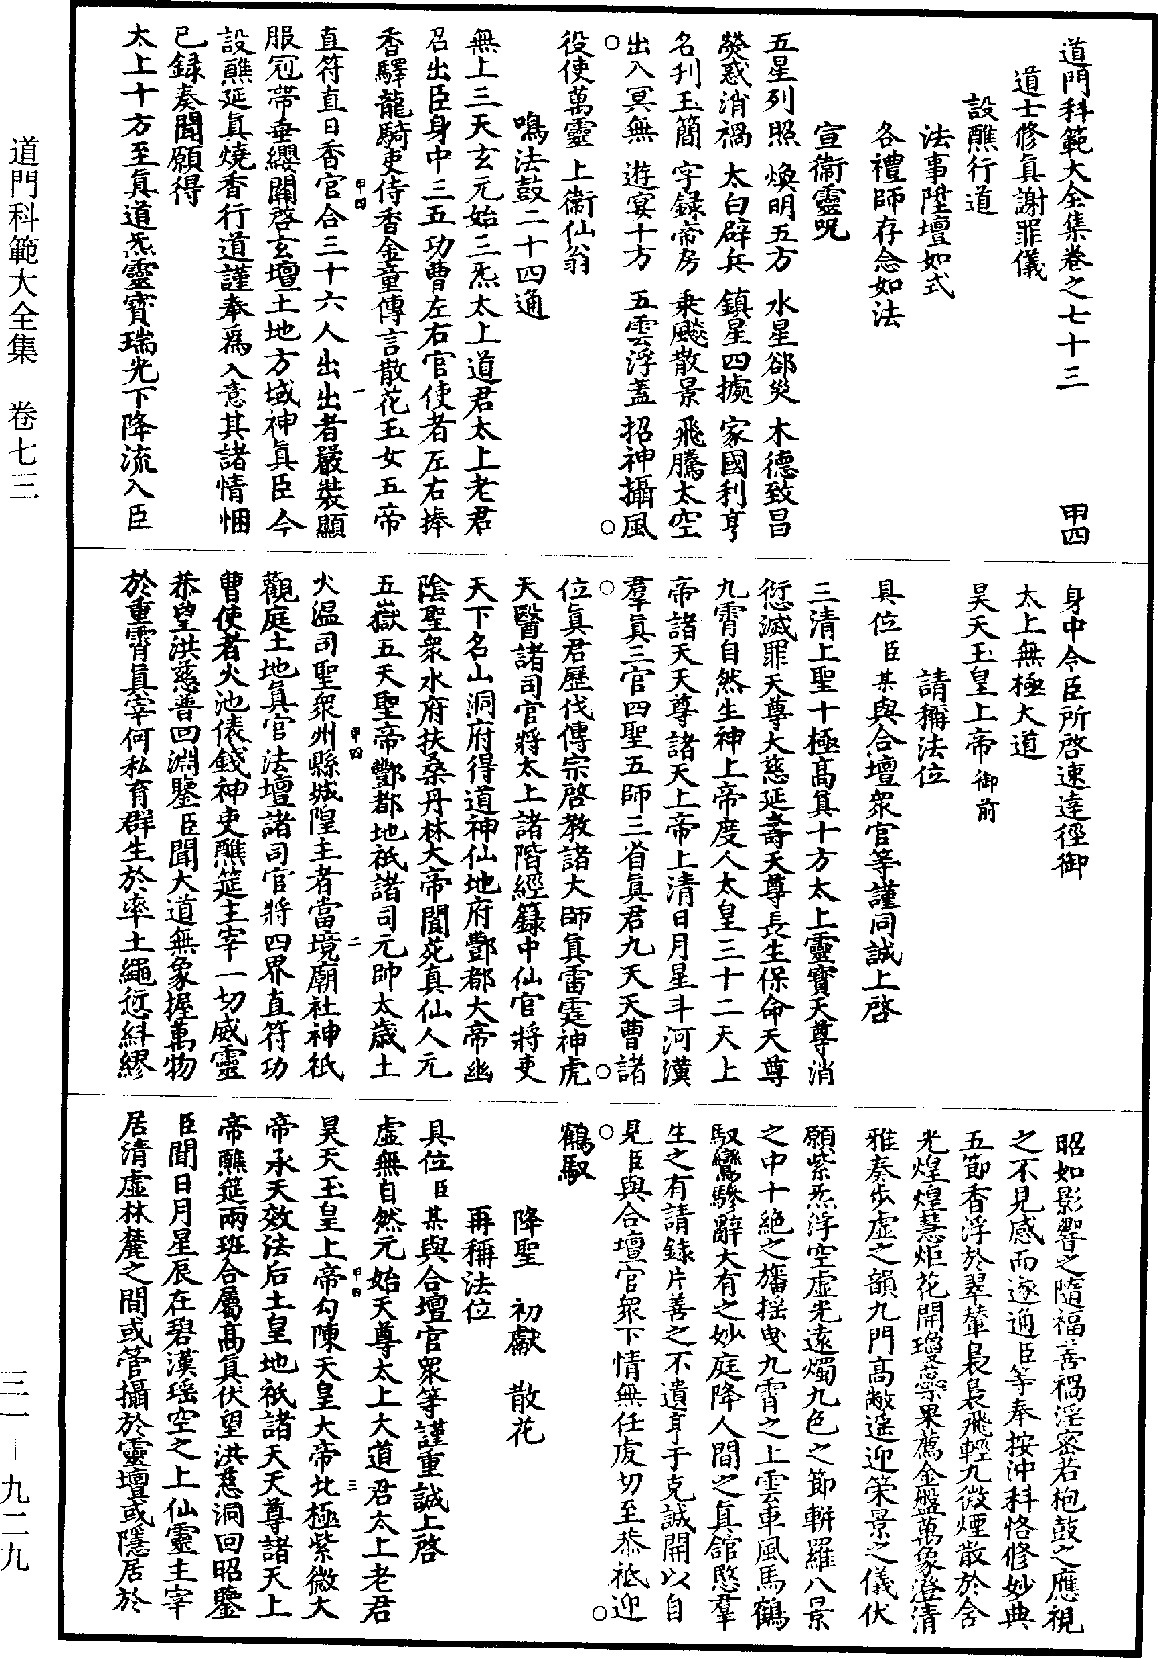 道門科範大全集卷之七十三 甲四
道士修真謝罪儀
設醮行道
法事陞壇如式
各禮師存念如法
宣衞靈呪
五星列照 煥明五方 水星郤災 木德致昌
熒惑消禍 太白辟兵 鎮星四據 家國利亨
名刋玉簡 字録帝房 乗飈散景 飛騰太空
出入冥無 遊宴十方 五雲浮蓋 招神攝風
役使萬靈 上衞仙翁
鳴法鼓二十四通
無上三天玄元始三炁太上道君太上老君
召出臣身中三五功曹左右官使者左右捧
香驛龍騎吏侍香金童傳言散花玉女五帝
直符直日香官合三十六人出出者嚴裝顯
服冠帶垂纓關啓玄壇土地方域神真臣今
設醮延真燒香行道謹奉爲入意其諸情悃
已録奏聞願得
太上十方至真道炁靈寳瑞光下降流入臣
身中令臣所啓速達徑御
太上無極大道
昊天玉皇上帝御前
請稱法位
具位臣某與合壇衆官等謹同誠上啓
三清上聖十極高真十方太上靈寳天尊消
愆滅罪天尊大慈延壽天尊長生保命天尊
九霄自然生神上帝度人太皇三十二天上
帝諸天天尊諸天上帝上清日月星斗河漢
羣真三官四聖五師三省真君九天天曹諸
位真君歷代傳宗啓教諸大師真雷霆神虎
天醫諸司官將太上諸階經籙中仙官將吏
天下名山洞府得道神仙地府酆都大帝幽
陰聖衆水府扶桑丹林大帝閬苑真仙人元
五嶽五天聖帝酆都地祇諸司元帥太歲土
火温司聖衆州縣城隍主者當境廟社神祇
觀庭土地真官法壇諸司官將四界直符功
曹使者火池俵錢神吏醮筵主宰一切威靈
恭望洪慈普回淵鑒臣聞大道無象握萬物
於重霄真宰何私育群生於率土繩愆紏繆
昭如影響之隨福善禍淫密若枹鼓之應視
之不見感而遂通臣等奉按沖科恪修妙典
五節香浮於翠輦晨晨飛輕九微煙散於含
光煌煌慧炬花開瓊蘂果薦金盤萬象澄清
雅奏步虚之韻九門高敞遥迎策景之儀伏
願紫炁浮空虚光遠燭九色之節軿羅八景
之中十絶之旛揺曳九霄之上雲車風馬鶴
馭鸞驂辭大有之妙庭降人間之真舘愍羣
生之有請録片善之不遺享于克誠開以自
見臣與合壇官衆下情無任虔切至恭祗迎
鶴馭
降聖 初獻 散花
再稱法位
具位臣某與合壇官衆等謹重誠上啓
虚無自然元始天尊太上大道君太上老君
昊天玉皇上帝勾陳天皇大帝北極紫微大
帝承天效法后土皇地祇諸天天尊諸天上
帝醮筵兩班合屬高真伏望洪慈洞回昭鑒
臣聞日月星辰在碧漢瑶空之上仙靈主宰
居清虚林麓之間或管攝於靈壇或隱居於
甲四 一
甲四 二
甲四 三
道門科範大全集 卷七三
三一－九二九